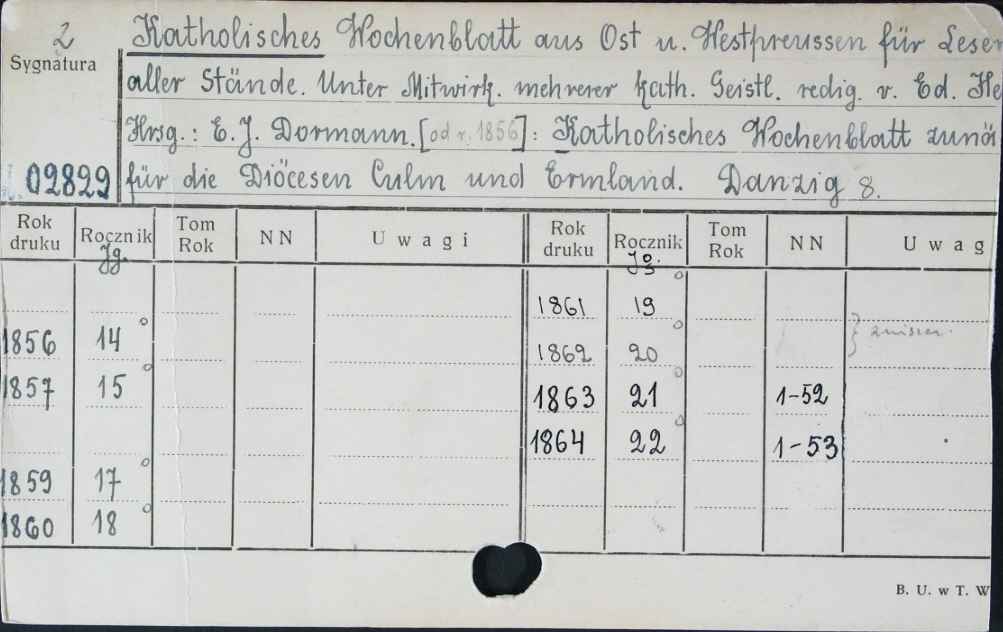 2
Sygnatura
02829
Katholisches Wochenblatt aus Ost u. Westpreussen für Leser
aller Stände. Unter Mitwirk. mehrerer kath. Geistl. redig. v. Ed. He
Hrsg.: E. J. Dormann. [od r. 1856]: Katholisches Wochenblatt zunä
für die Diöcesen Culm und Ermland. Danzig 8.
Rok druku Rocznik Tom Rok NN Uwagi Rok druku Rocznik Tom Rok NN Uwag
Jg. Jg.
1861 19
1856 14 1862 20
1857 15 1863 21 1-52
1864 22 1-53
1859 17
1860 18
B. U. w T. W